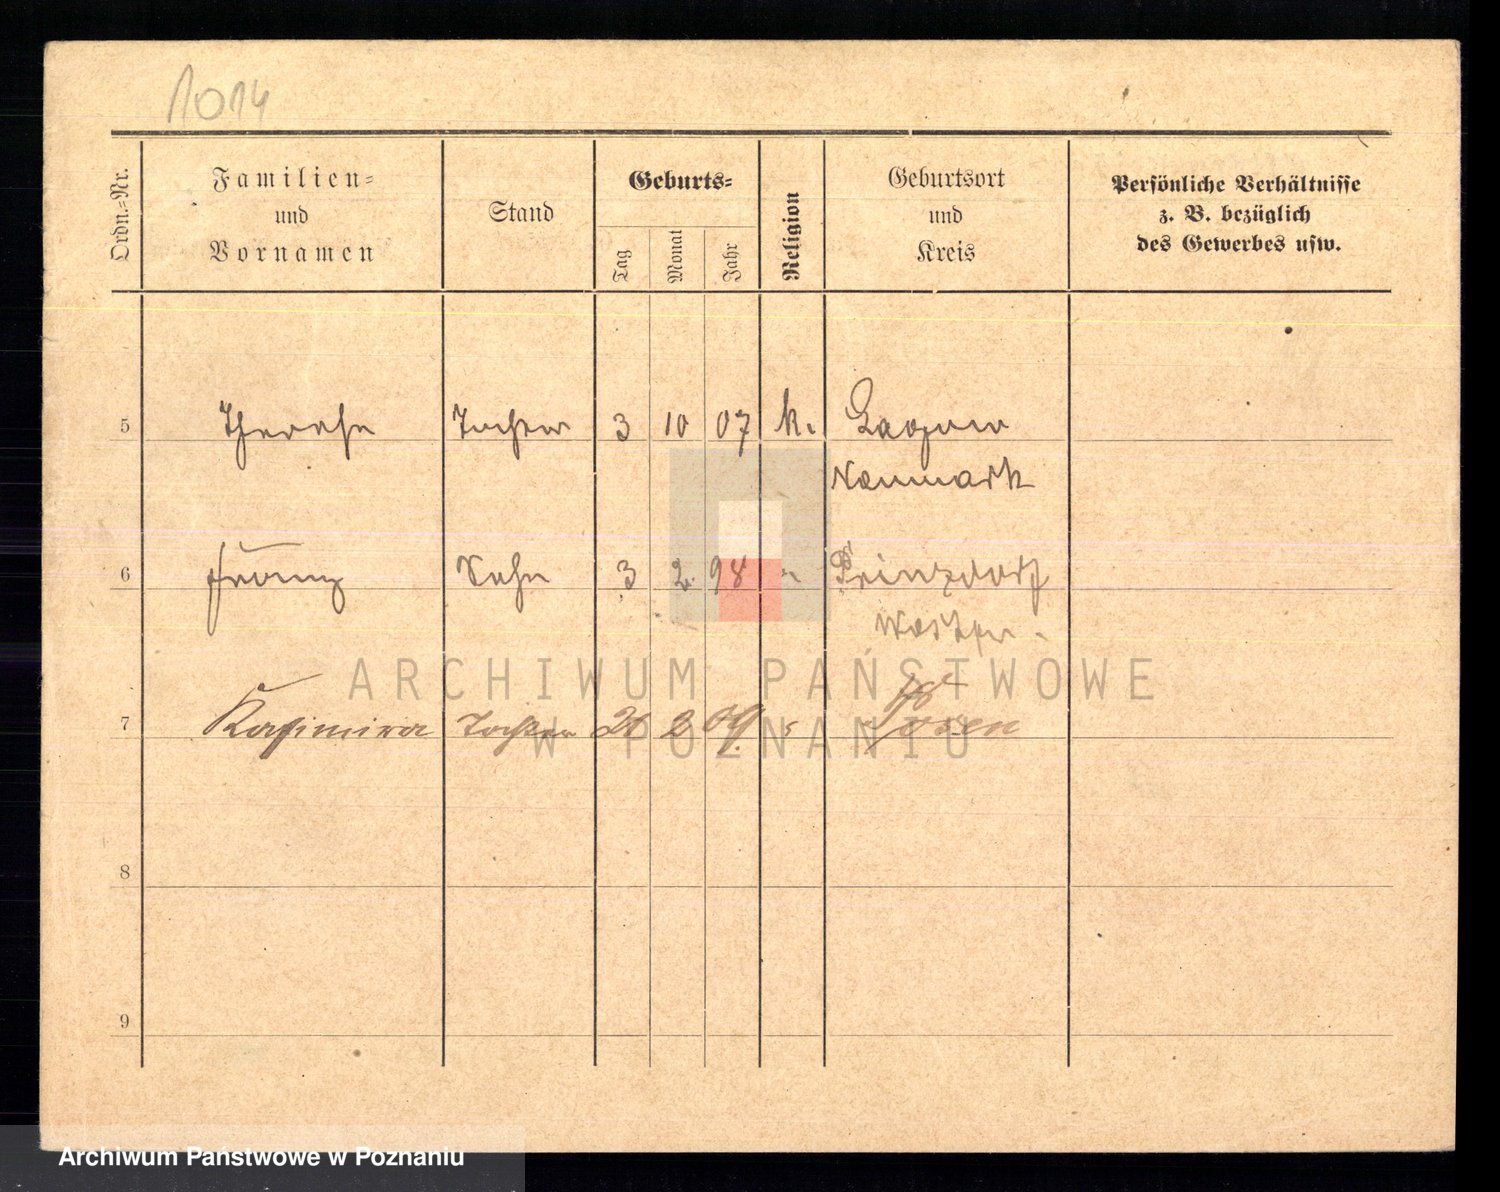 1014
Ordn.-Nr.
Familien-
und
Vornamen
Stand
Geburts-
Tag
Monat
Jahr
Religion
Geburtsort
und
Kreis
Persönliche Verhältnisse
z. B. bezüglich
des Gewerbes usw.
5 Tochter 3 10 07 k.
Neumark
6 Franz Sohn 3 2. 98 " Prinzdorf
Westpr.
7 Kasimira Tochter 2 09. Posen
8
9
ARCHIWUM PAŃSTWOWE
W POZNANIU
Archiwum Państwowe w Poznaniu